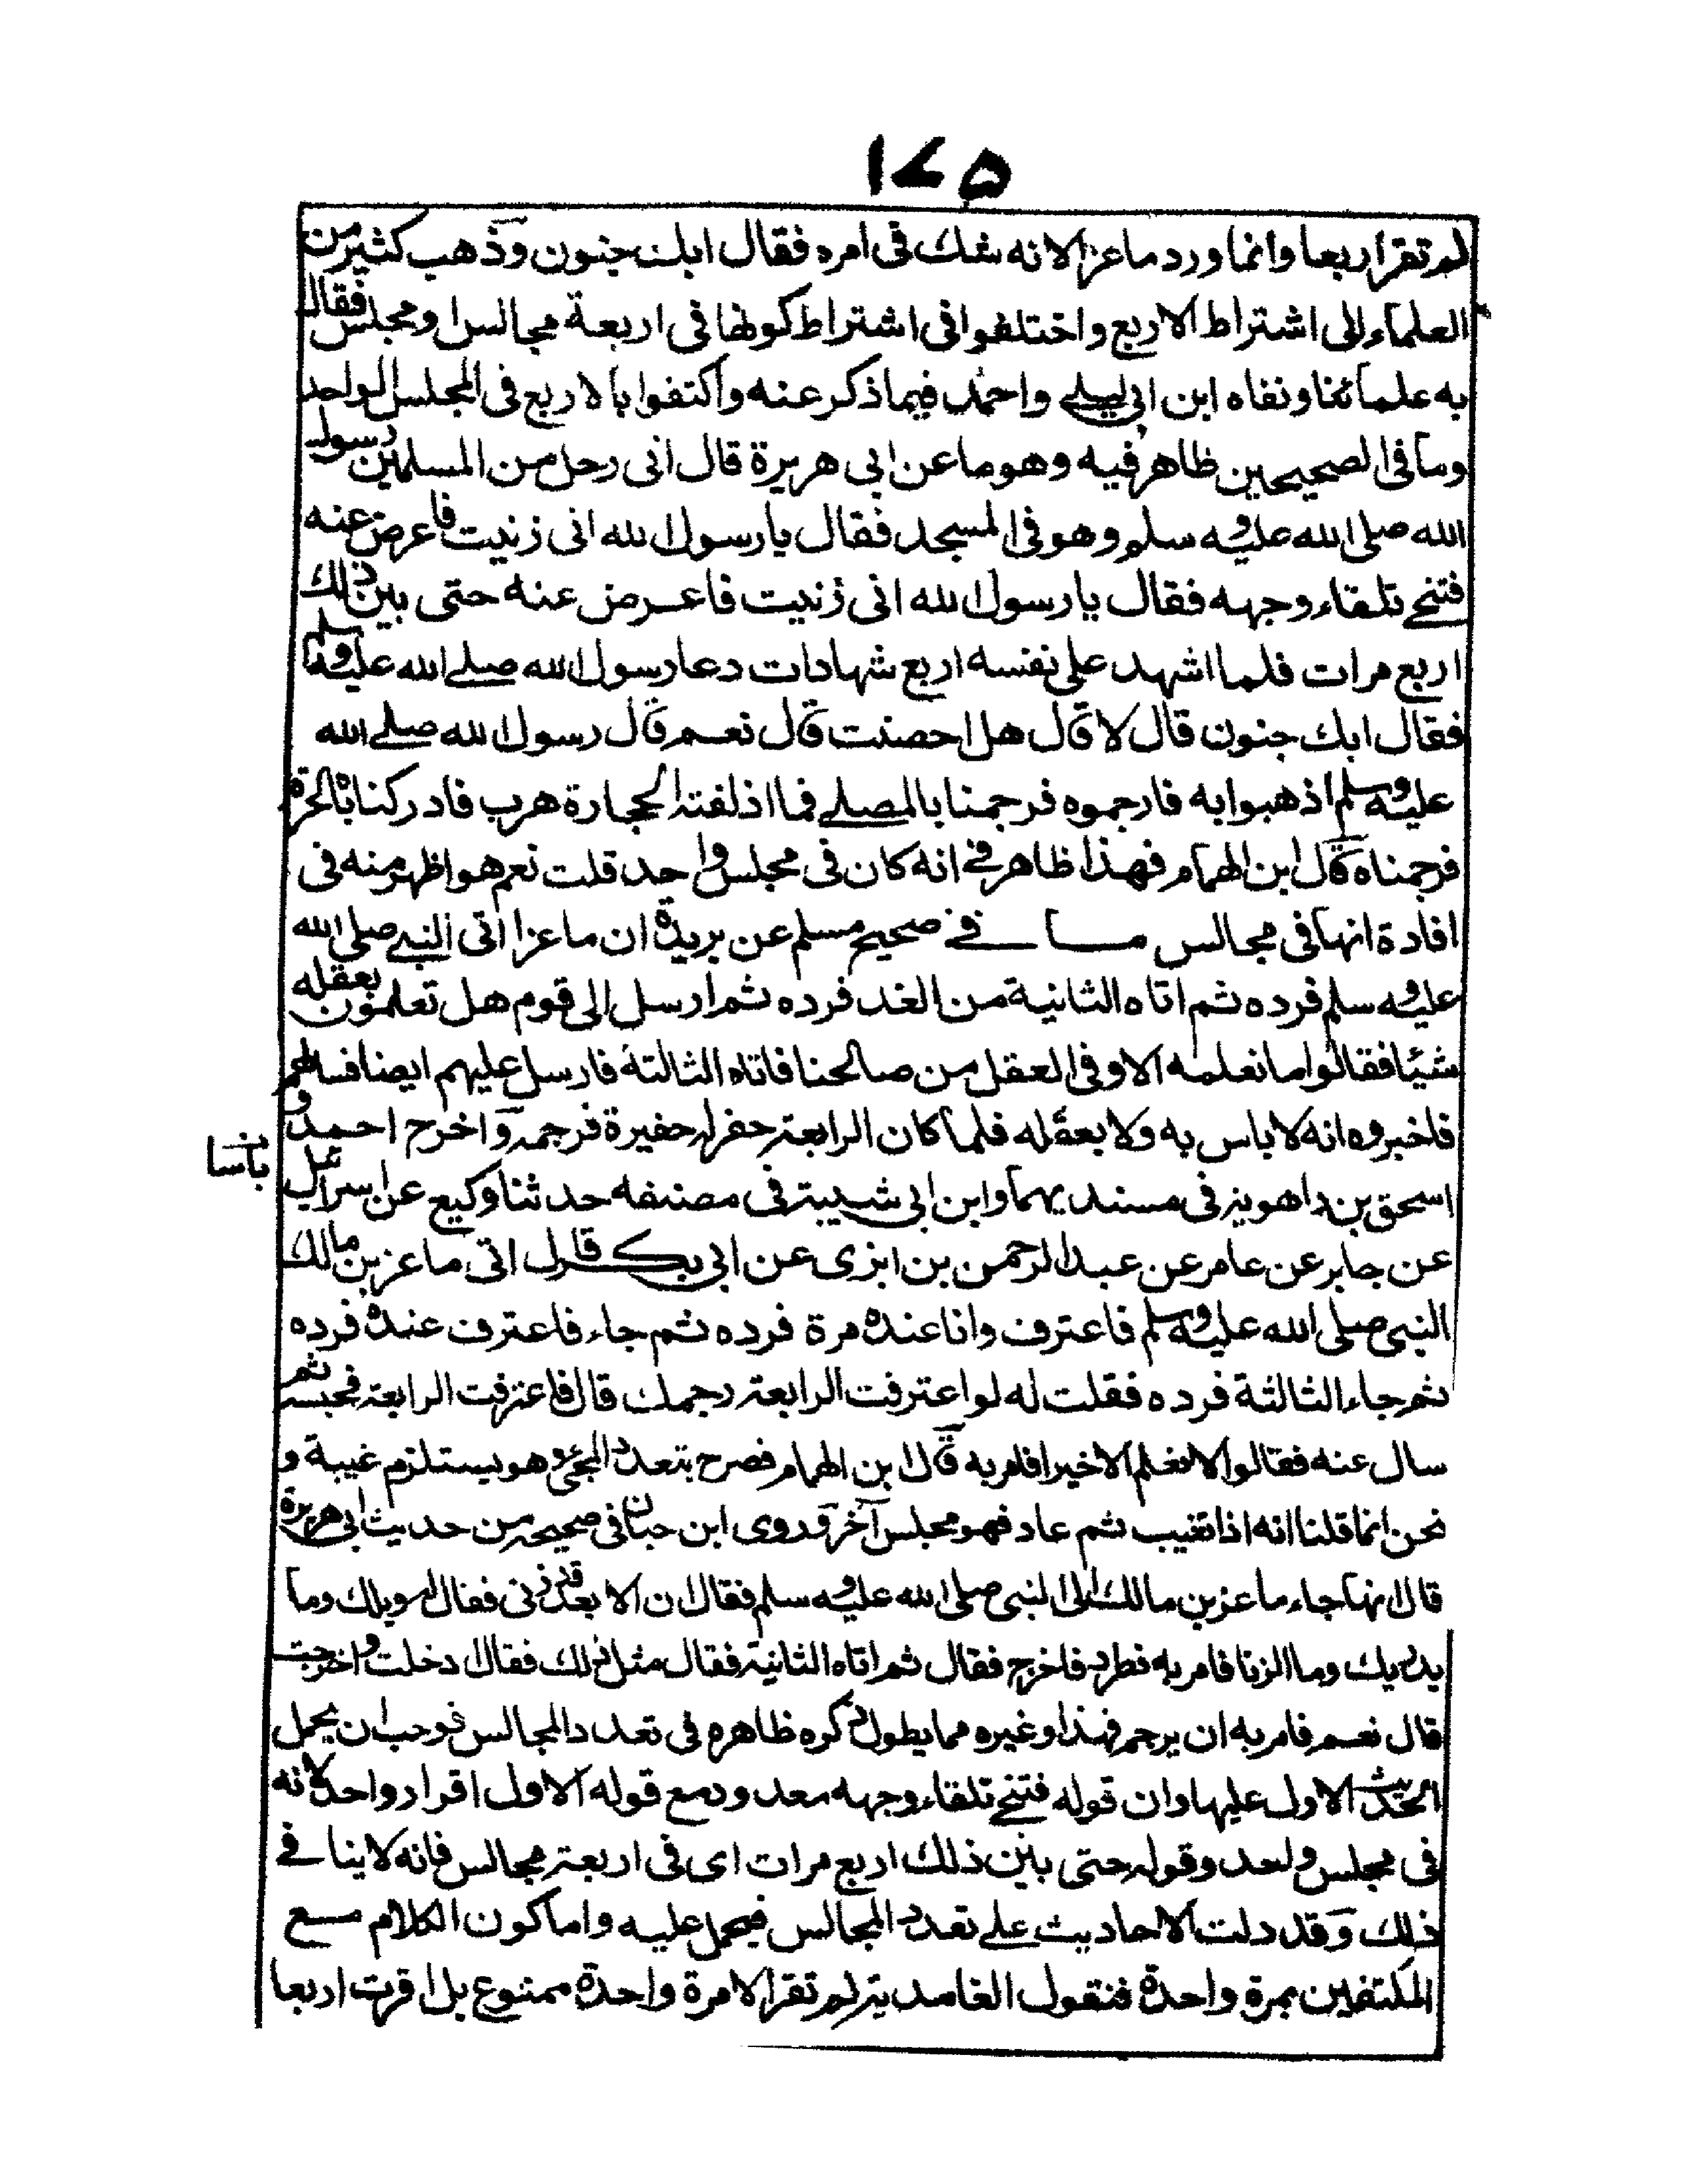 ١٧٥
لم تقر اربعا وانما ورد ماعز الا نه شك فى امره فقال ابك جنون وذهب كثير من
العلماء الى اشتراط الاربع واختلفوا فى اشتراط كونها فى اربعة مجالس او مجلس فقال
به علمائنا ونفاه ابن ابى ليلى واحمد فيما ذكر عنه واكتفوا بالاربع فى المجلس الواحد
وما فى الصحيحين ظاهر فيه وهو ما عن ابى هريرة قال اتى رجل من المسلمين رسول
الله صلى الله عليه وسلم وهو فى المسجد فقال يا رسول الله انى زنيت فاعرض عنه
فتنحى تلقاء وجهه فقال يا رسول الله انى زنيت فاعرض عنه حتى بين ذلك
اربع مرات فلما اشهد على نفسه اربع شهادات دعا رسول الله صلى الله عليه وسلم
فقال ابك جنون قال لا قال هل احصنت قال نعم قال رسول الله صلى الله
عليه وسلم اذهبوا به فارجموه فرجمنا بالمصلى فما اذلفته الحجارة هرب فادركناه بالحرة
فرجمناه قال ابن الهمام فهذا ظاهر فى انه كان فى مجلس واحد قلت نعم هو اظهر منه فى
افادة انها فى مجالس ما فى صحيح مسلم عن بريدة ان ماعزا اتى النبى صلى الله
عليه وسلم فرده ثم اتاه الثانية من الغد فرده ثم ارسل الى قوم هل تعلمون بعقله
شيئا فقالوا ما نعلمه الا وفى العقل من صالحنا فاتاه الثالثة فارسل عليهم ايضا فسالهم
فاخبروه انه لا باس به ولا بعقله فلما كان الرابعة حفر له حفيرة فرجمه واخرج احمد و
باسا
اسحق بن راهويه فى مسنديهما وابن ابى شيبة فى مصنفه حدثنا وكيع عن اسرائيل
عن جابر عن عامر عن عبد الرحمن بن ابزى عن ابى بكر قال اتى ماعز بن مالك
النبى صلى الله عليه وسلم فاعترف وانا عنده مرة فرده ثم جاء فاعترف عنده فرده
ثم جاء الثالثة فرده فقلت له لو اعترفت الرابعة رجمك قال فاعترفت الرابعة فحبسه ثم
سال عنه فقالوا لا نعلم الا خيرا فامر به قال ابن الهمام فصرح بتعدد المجئ وهو يستلزم غيبة و
نحن انما قلنا انه اذا تغيب ثم عاد فهو مجلس آخر وروى ابن حبان فى صحيحه من حديث ابى هريرة
قال انها جاء ماعز بن مالك الى النبى صلى الله عليه وسلم فقال ان الا بعد قد زنى فقال له ويلك وما
يدريك وما الزنا فامر به فطرد فاخرج فقال ثم اتاه الثانية فقال مثل ذلك فقال دخلت واخرجت
قال نعم فامر به ان يرجم فهذا وغيره مما يطول ذكره ظاهره فى تعدد المجالس فوجب ان يحمل
الحديث الاول عليها وان قوله فتنحى تلقاء وجهه معدود مع قوله الاول اقرار واحد لانه
فى مجلس واحد وقوله حتى بين ذلك اربع مرات اى فى اربعة مجالس فانه لا ينافى
ذلك وقد دلت الاحاديث على تعدد المجالس فيحمل عليه واما كون الكلام مع
المكتفين بمرة واحدة فنقول الغامدية لم تقر الا مرة واحدة ممتنوع بل اقرت اربعا